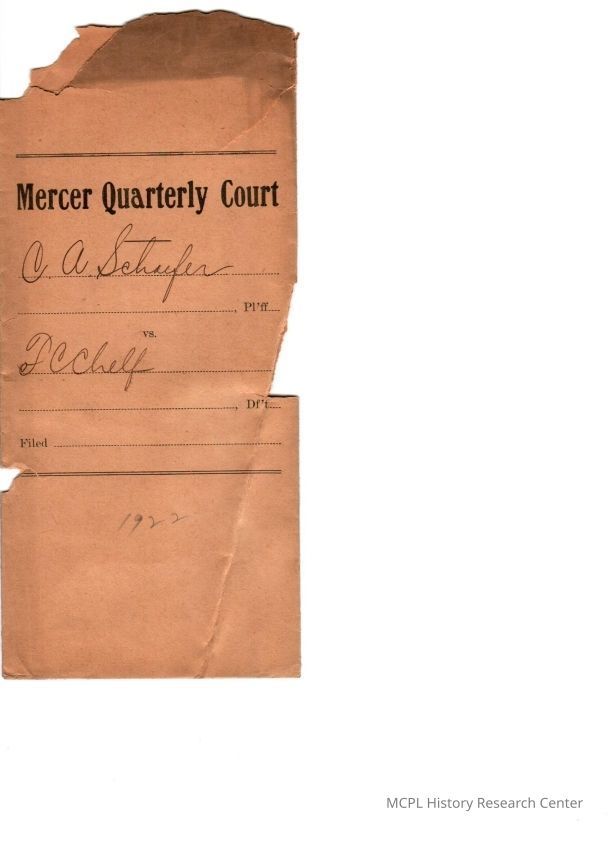 Mercer Quarterly Court
C. A. Schaefer
, Pl'ff.
vs.
F C Chelf
, Df't.
Filed
1922
MCPL History Research Center